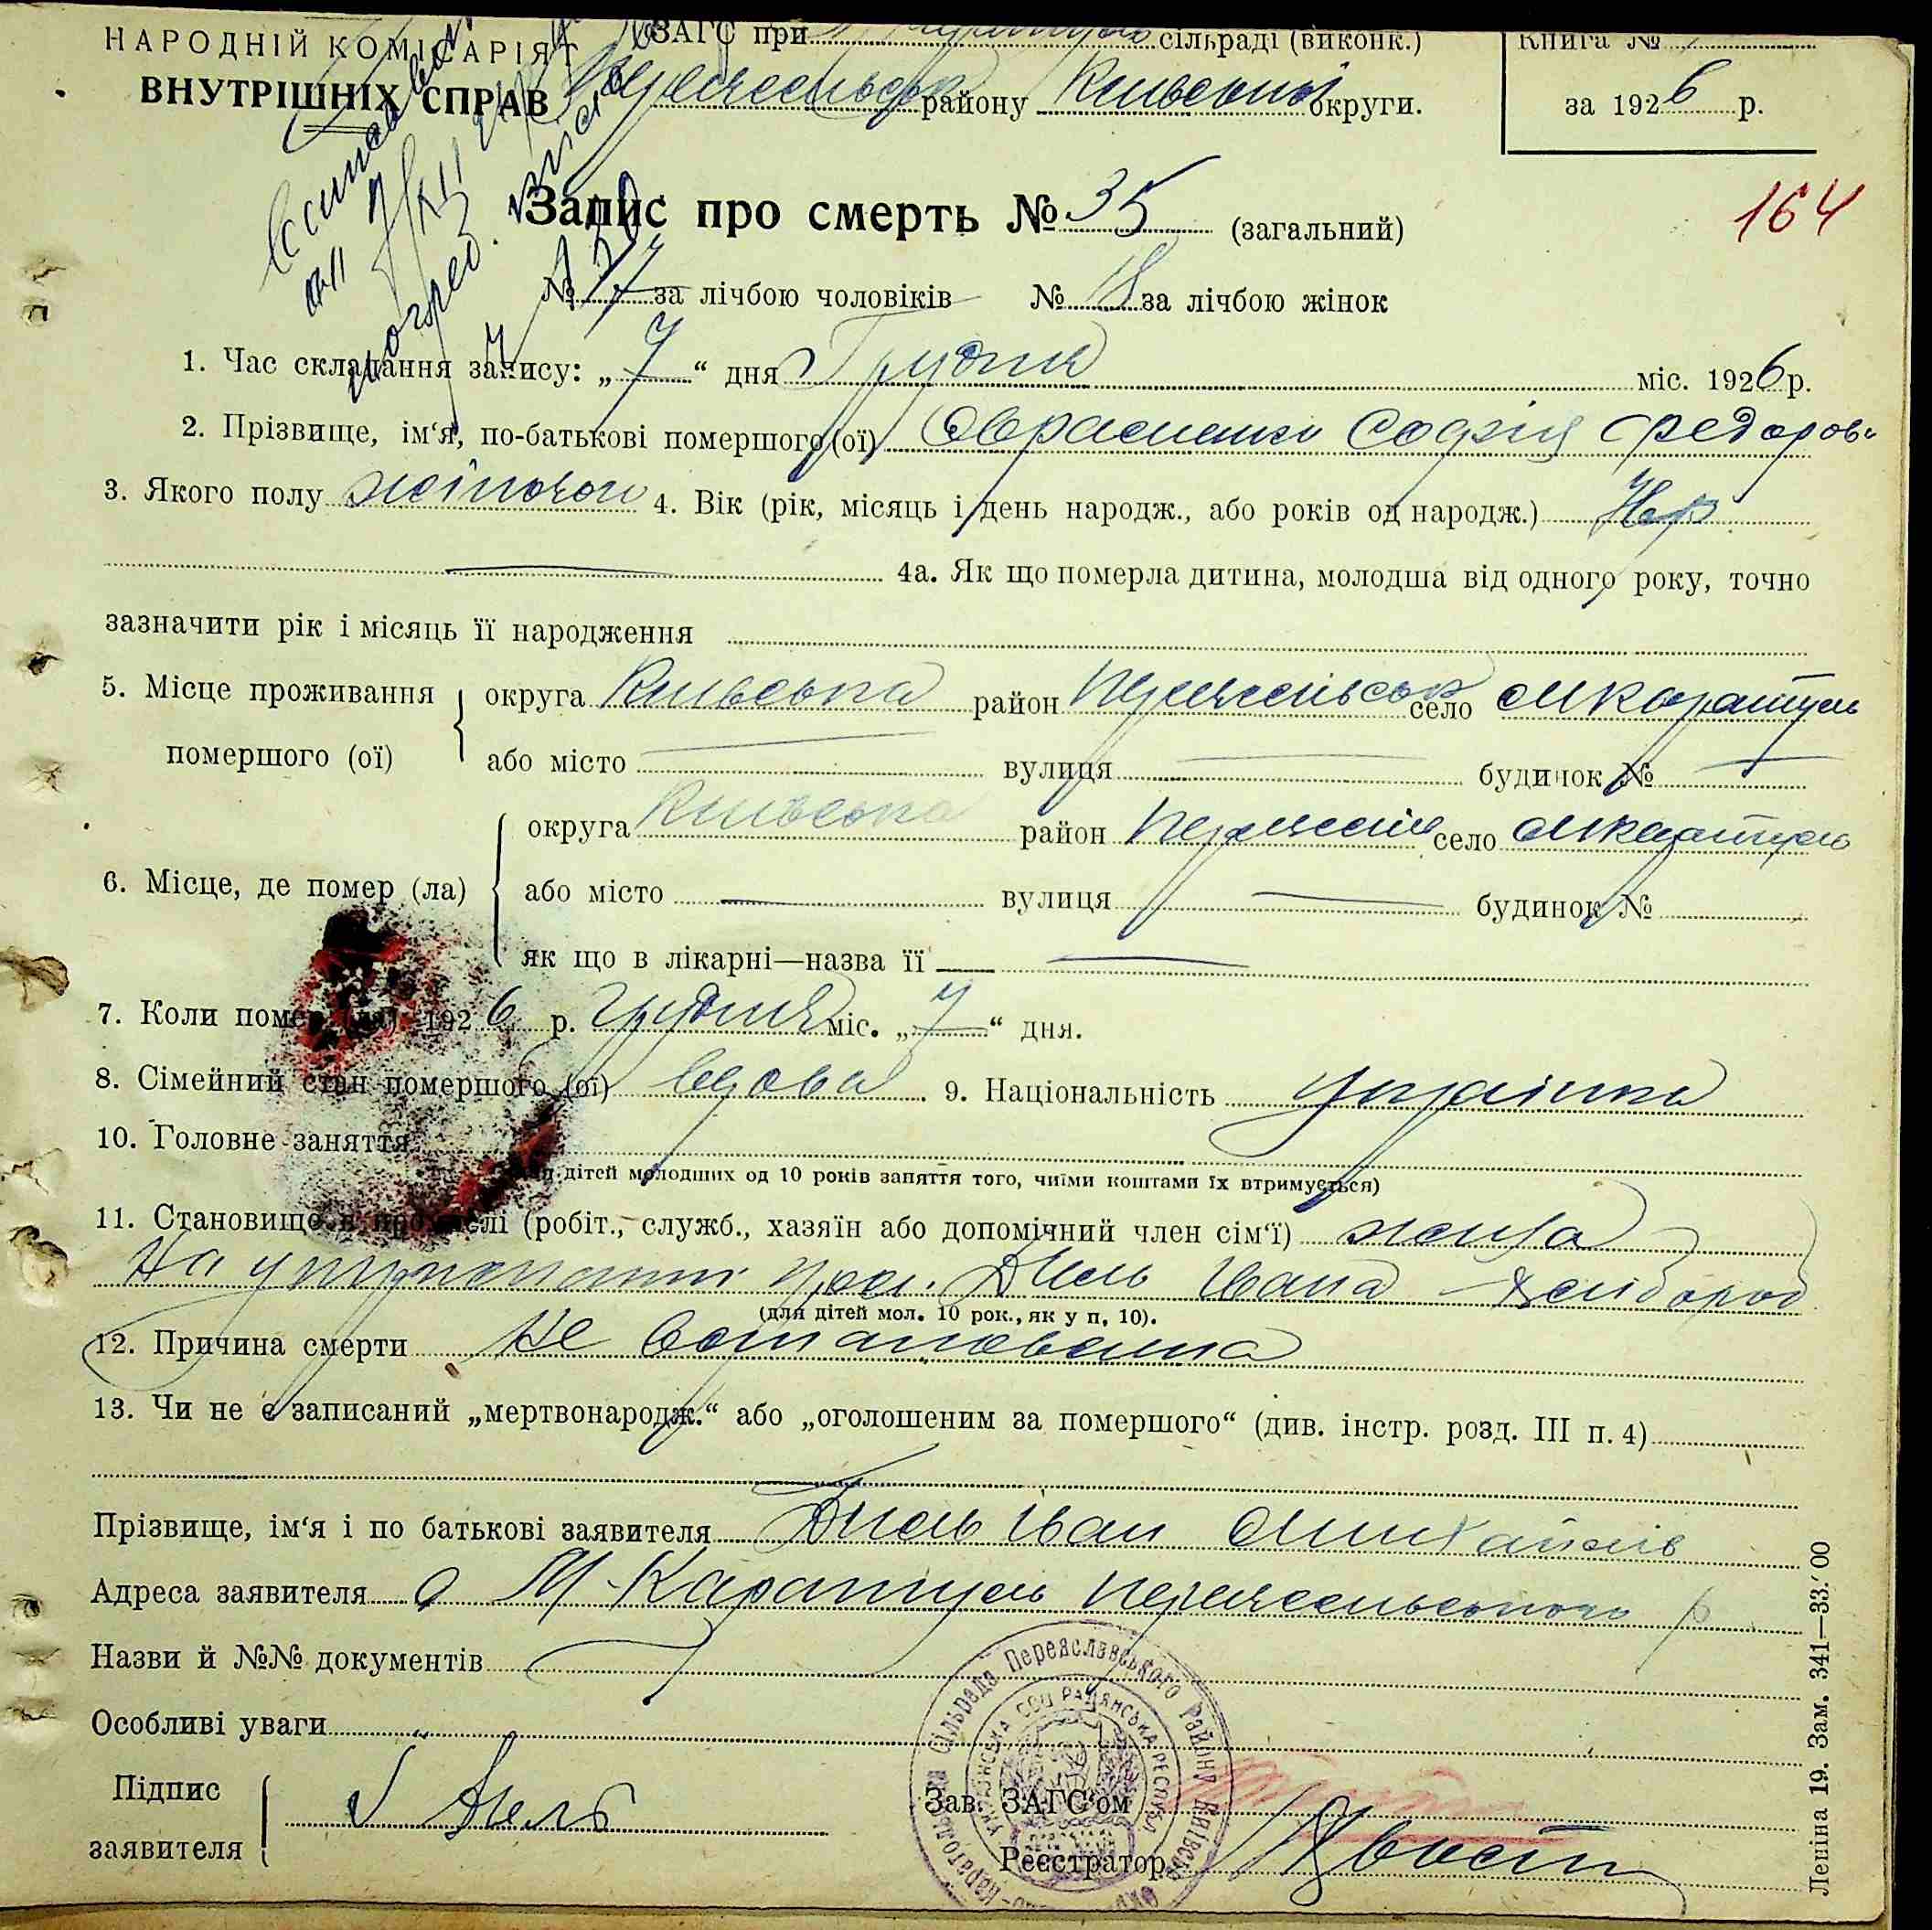 НАРОДНІЙ КОМІСАРІЯТ
ВНУТРІШНІХ СПРАВ
ЗАГС при сільраді (виконк.)
району Київської округи.
Книга №
за 1926 р.
164
Запис про смерть № 35 (загальний)
№ 17 за лічбою чоловіків № 18 за лічбою жінок
1. Час складання запису: „7“ дня Грудня міс. 1926 р.
2. Прізвище, ім‘я, по-батькові помершого (ої) Софія Федоров
3. Якого полу жіночої 4. Вік (рік, місяць і день народж., або років од народж.)
4а. Як що померла дитина, молодша від одного року, точно
зазначити рік і місяць її народження
5. Місце проживання помершого (ої)
округа Київська район Переяславськ село М Каратуль
або місто вулиця будинок №
6. Місце, де помер (ла)
округа Київська район Переяслів село М Каратуль
або місто вулиця будинок №
як що в лікарні—назва її
7. Коли помер (ла) 1926 р. грудня міс. „7“ дня.
8. Сімейний стан помершого (ої) вдова 9. Національність Українка
10. Головне заняття
дітей молодших од 10 років заняття того, чиїми коштами їх втримується)
11. Становище в промислі (робіт., служб., хазяїн або допомічний член сім‘ї)
На утриманні Івана
(для дітей мол. 10 рок., як у п. 10).
12. Причина смерти Не встановлена
13. Чи не є записаний „мертвонародж.“ або „оголошеним за помершого“ (див. інстр. розд. III п. 4)
Прізвище, ім‘я і по батькові заявителя Іван Михайлів
Адреса заявителя с М-Каратуль Переяславського р
Назви й №№ документів
Особливі уваги
Підпис заявителя
Зав. ЗАГС‘ом
Реєстратор
Сільрада Переяславського Району Київської
УКРАЇНСЬКА СОЦ РАДЯНСЬКА РЕСПУБЛ
Леніна 19. Зам. 341—33.‘00